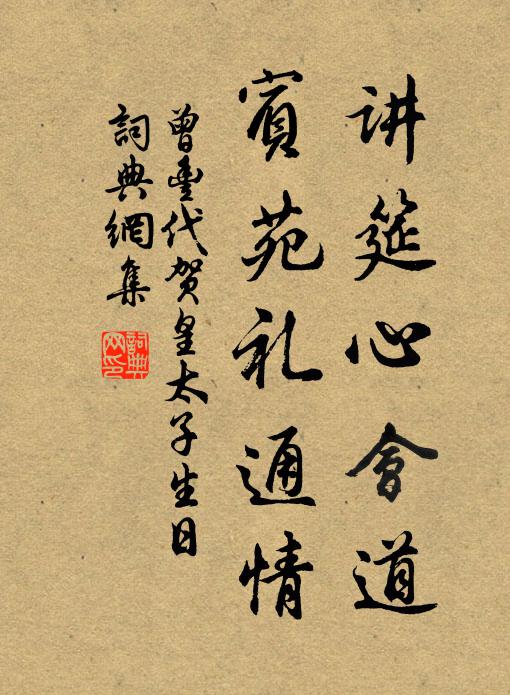 讲筵心會道
賓苑礼通情
曾豐代贺皇太子生日
詞典網集
詞典网印